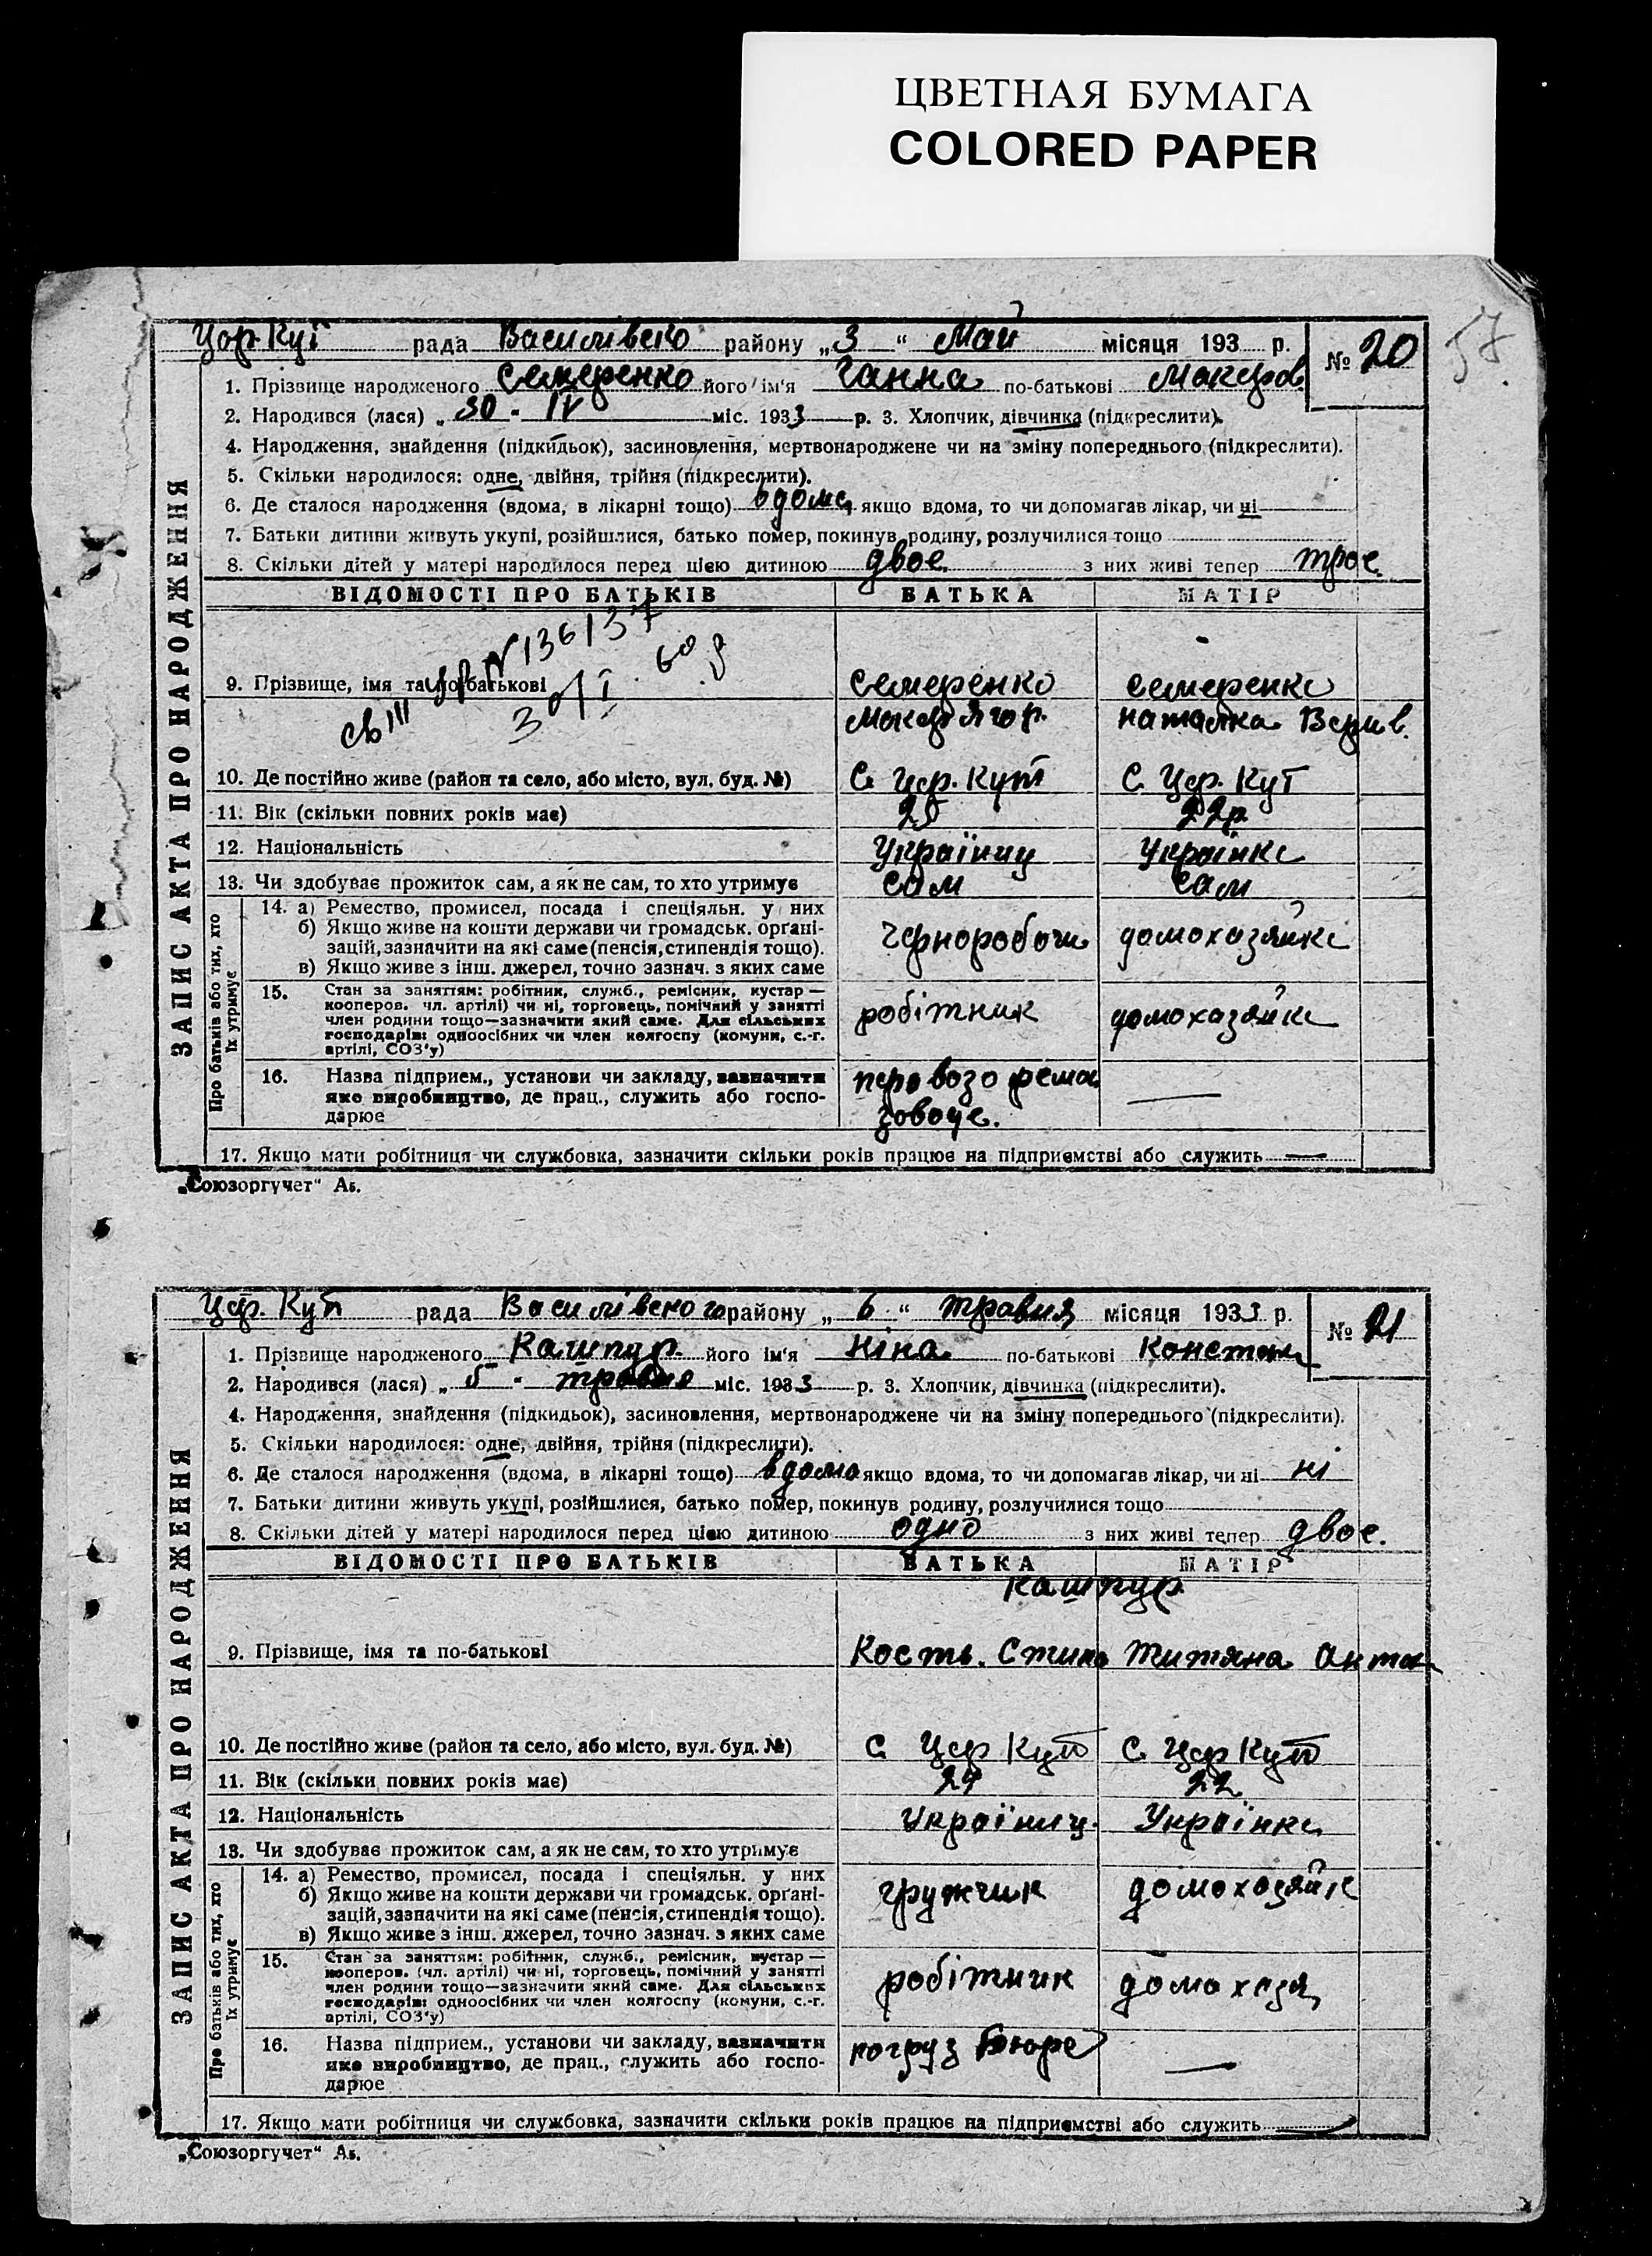 ЦВЕТНАЯ БУМАГА
COLORED PAPER
57
Цар Кут рада Василівсько району „3“ Май місяця 193 р. № 20
1. Прізвище народженого Семеренко його ім'я Ганна по-батькові Макаров
2. Народився (лася) „30 - IV міс. 1933 р. 3. Хлопчик, дівчинка (підкреслити).
4. Народження, знайдення (підкидьок), засиновлення, мертвонароджене чи на зміну попереднього (підкреслити).
5. Скільки народилося: одне, двійня, трійня (підкреслити).
6. Де сталося народження (вдома, в лікарні тощо) вдома якщо вдома, то чи допомагав лікар, чи ні
7. Батьки дитини живуть укупі, розійшлися, батько помер, покинув родину, розлучилися тощо
8. Скільки дітей у матері народилося перед цією дитиною двое з них живі тепер трое.
ЗАПИС АКТА ПРО НАРОДЖЕННЯ
ВІДОМОСТІ ПРО БАТЬКІВ БАТЬКА МАТІР
№136137
9. Прізвище, імя та по-батькові Семеренко Семеренко
Макар Ягор. Наталка
10. Де постійно живе (район та село, або місто, вул. буд. №) С. Цар. Кут С. Цар. Кут
11. Вік (скільки повних років має) 25 22р
12. Національність Українць Українка
13. Чи здобуває прожиток сам, а як не сам, то хто утримує сам сам
Про батьків або тих, хто їх утримує
14. а) Ремество, промисел, посада і спеціяльн. у них
б) Якщо живе на кошти держави чи громадськ. орґані-
зацій, зазначити на які саме (пенсія, стипендія тощо).
в) Якщо живе з інш. джерел, точно зазнач. з яких саме
чорноробочи домохазяйка
15. Стан за заняттям: робітник, служб., ремісник, кустар —
кооперов. чл. артілі) чи ні, торговець, помічний у занятті
член родини тощо—зазначити який саме. Для сільських
господарів: одноосібних чи член колгоспу (комуни, с.-г.
артілі, СОЗ'у)
робітник домохазяйка
16. Назва підприєм., установи чи закладу, зазначити
яке виробництво, де прац., служить або госпо-
дарюе
заводе.
17. Якщо мати робітниця чи службовка, зазначити скільки років працює на підприємстві або служить —
„Союзоргучет“ Аб.
Цар. Кут рада Василівського району „6“ травня місяця 1933 р. № 21
1. Прізвище народженого Кашпур його ім'я Ніна по-батькові Констан
2. Народився (лася) „5 - травня міс. 1933 р. 3. Хлопчик, дівчинка (підкреслити).
4. Народження, знайдення (підкидьок), засиновлення, мертвонароджене чи на зміну попереднього (підкреслити).
5. Скільки народилося: одне, двійня, трійня (підкреслити).
6. Де сталося народження (вдома, в лікарні тощо) вдома якщо вдома, то чи допомагав лікар, чи ні ні
7. Батьки дитини живуть укупі, розійшлися, батько помер, покинув родину, розлучилися тощо
8. Скільки дітей у матері народилося перед цією дитиною одно з них живі тепер двое.
ЗАПИС АКТА ПРО НАРОДЖЕННЯ
ВІДОМОСТІ ПРО БАТЬКІВ БАТЬКА МАТІР
Кашпур
9. Прізвище, імя та по-батькові Кость. Титяна Антон
10. Де постійно живе (район та село, або місто, вул. буд. №) С Цар Кут С. Цар Кут
11. Вік (скільки повних років має) 24 22
12. Національність Українц. Українка
13. Чи здобуває прожиток сам, а як не сам, то хто утримує
Про батьків або тих, хто їх утримує
14. а) Ремество, промисел, посада і спеціяльн. у них
б) Якщо живе на кошти держави чи громадськ. орґані-
зацій, зазначити на які саме (пенсія, стипендія тощо).
в) Якщо живе з інш. джерел, точно зазнач. з яких саме
гружчик домохазяйк
15. Стан за заняттям: робітник, служб., ремісник, кустар —
кооперов. (чл. артілі) чи ні, торговець, помічний у занятті
член родини тощо—зазначити який саме. Для сільських
господарів: одноосібних чи член колгоспу (комуни, с.-г.
артілі, СОЗ'у)
робітник домохазя
16. Назва підприєм., установи чи закладу, зазначити
яке виробництво, де прац., служить або госпо-
дарюе
погруз бюре —
17. Якщо мати робітниця чи службовка, зазначити скільки років працює на підприємстві або служить
„Союзоргучет“ Аб.